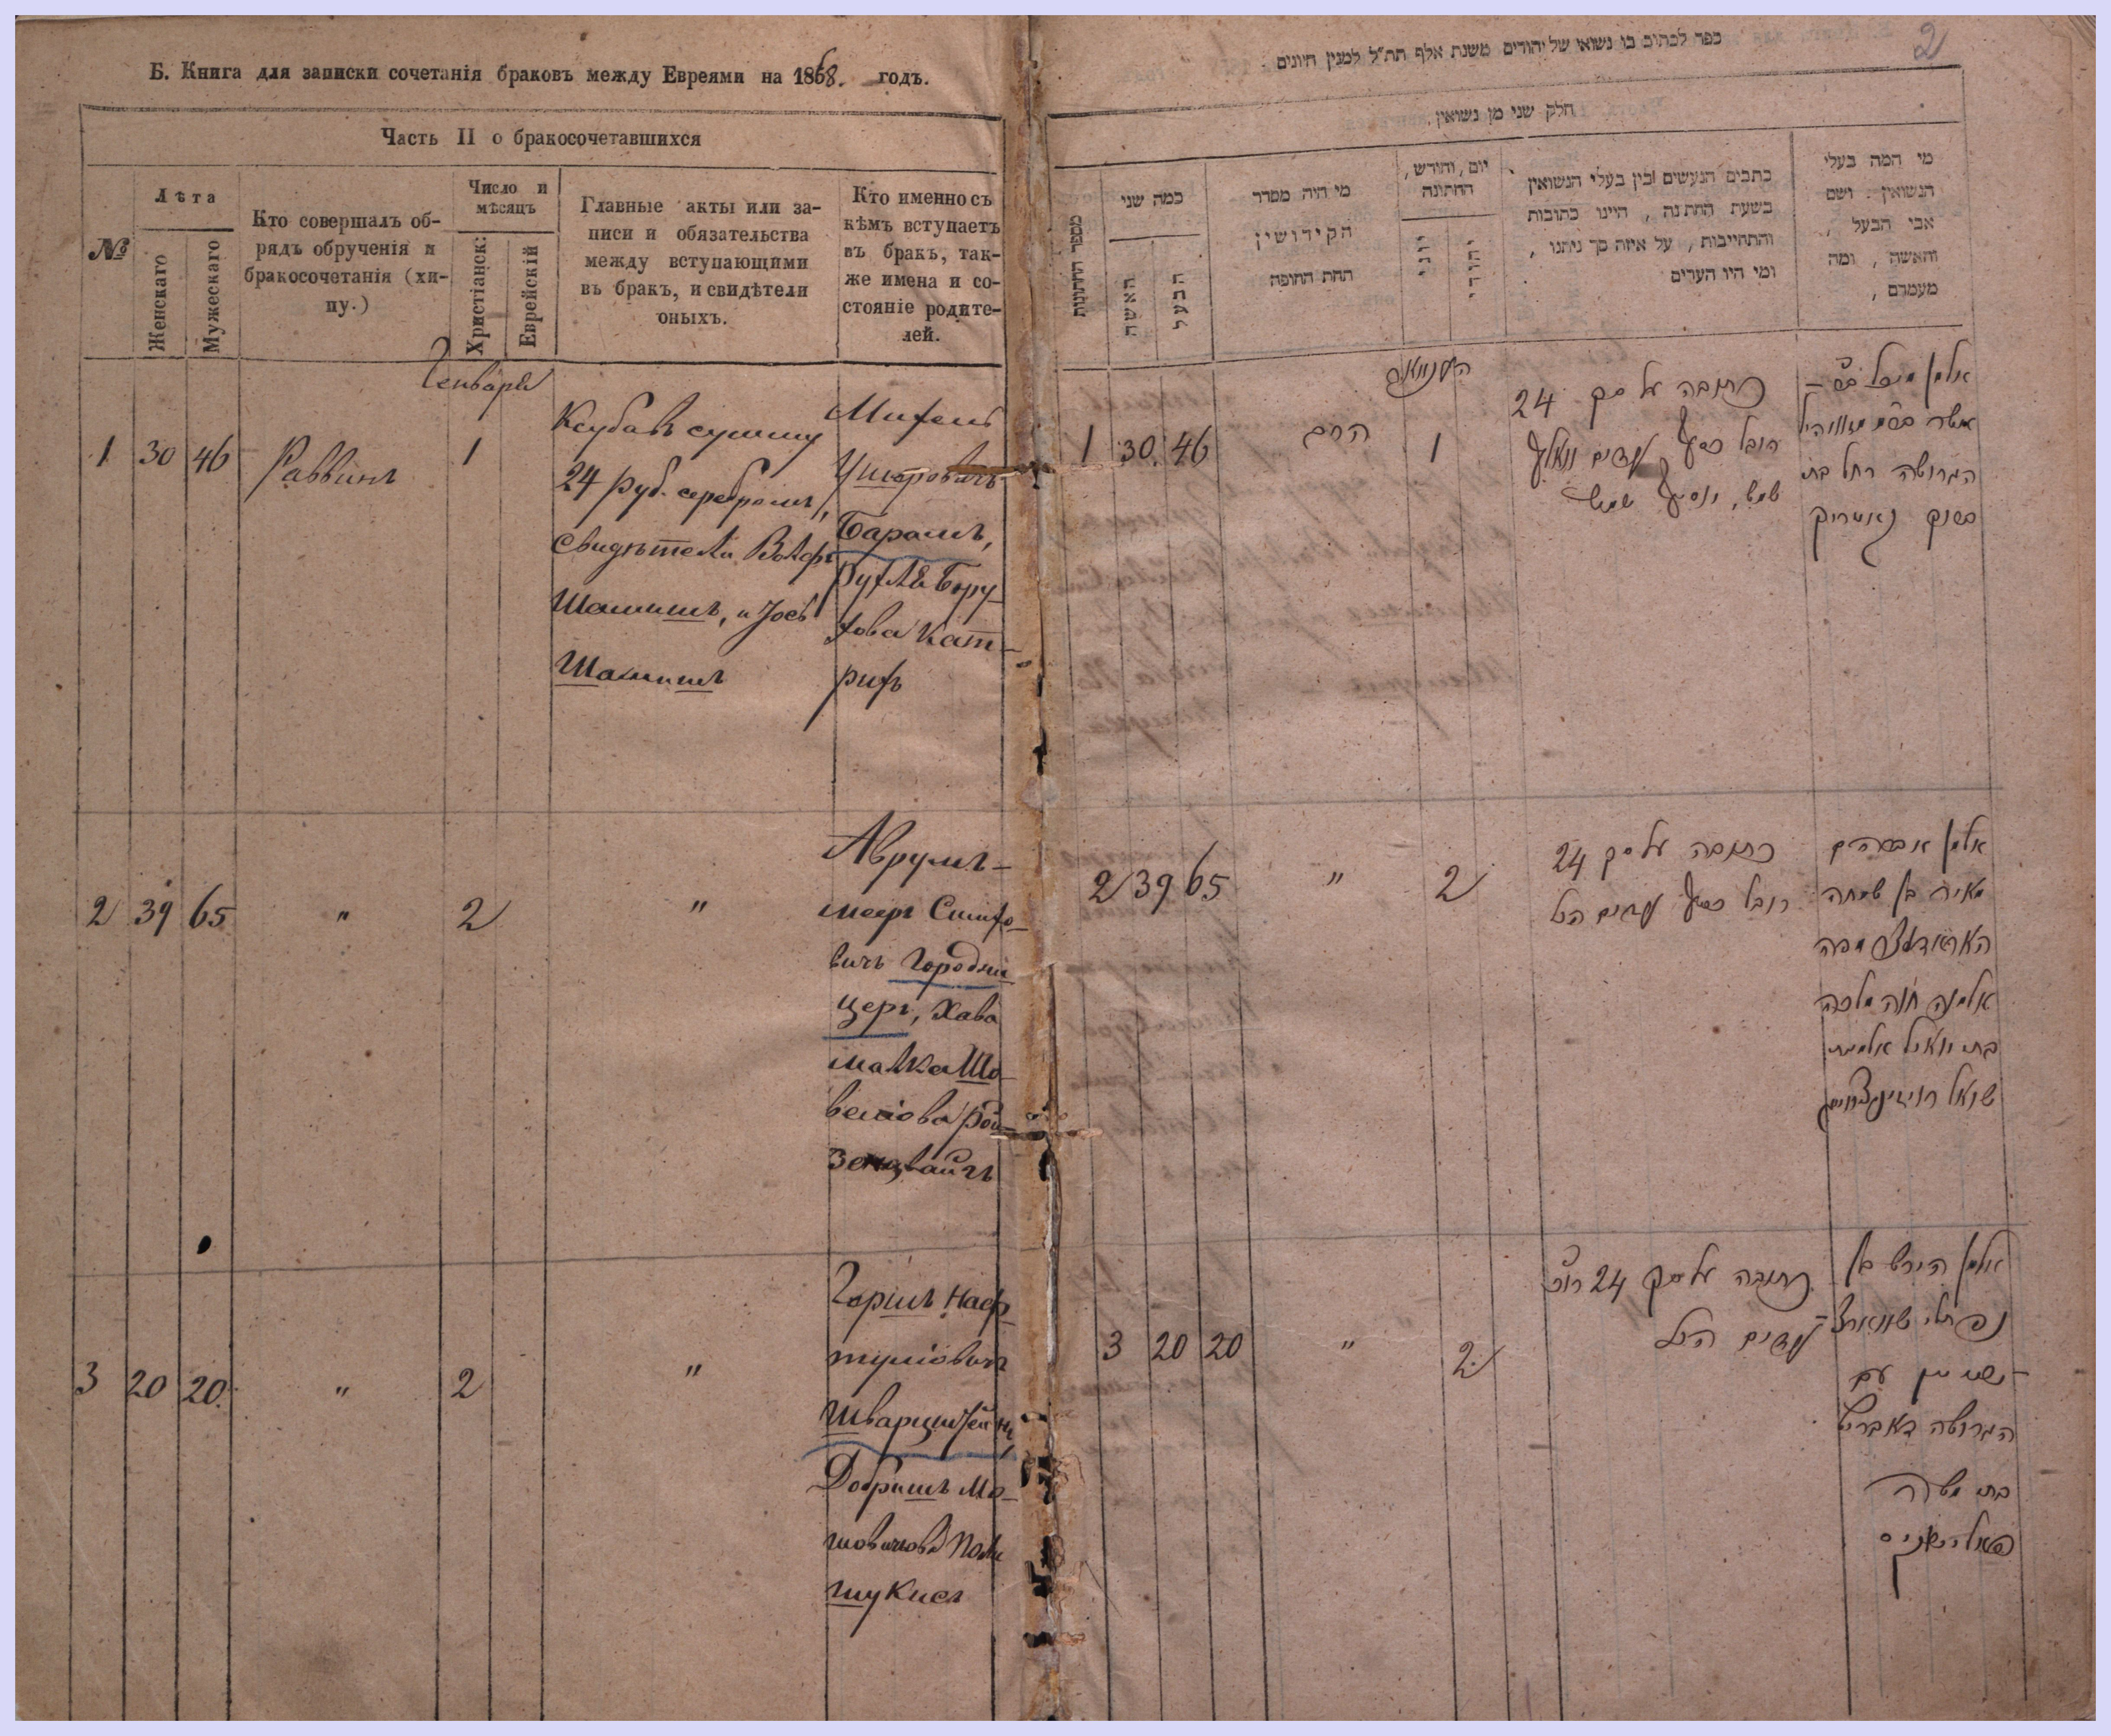 Б. Книга для записки сочетанія браковъ между Евреями на 1868. годъ.
Часть II о бракосочетавшихся
№
Лѣта
Женскаго
Мужескаго
Кто совершалъ об-
рядъ обрученія и
бракосочетанія (хи-
пу.)
Число и
мѣсяцъ
Христіанск:
Еврейскій
Главные акты или за-
писи и обязательства
между вступающими
въ бракъ, и свидѣтели
оныхъ.
Кто именно съ
кѣмъ вступаетъ
въ бракъ, так-
же имена и со-
стояніе родите-
лей.
Генваря
1 30 46 Раввинъ 1
Ксубавъ сумму
24 руб. серебромъ,
свидѣтели Волфъ
Шамишъ, и Іось
Шамишъ
Михель
Барамъ,
Рухля Бору-
хова Кат-
рихъ
2 39 65 " 2 "
Аврумъ-
мееръ Симхо-
вичъ Городни-
церъ, Хава
малка Шо-
велiова Рой-
зенцвайгъ
3 20 20 " 2 "
Горшъ Наф-
тулiовичъ
Шварцштейнъ
Добришъ Мо-
шовичова Поли-
щукисъ
2
ספר לכתוב בו נשואי של יהודים משנת אלף תת"ל למנין היונים
חלק שני מן נשואין.
מספר החתונות
כמה שני
האשה
הבעל
מי היה מסדר
הקידושין
תחת החופה
יום, וחודש,
החתונה
יוני
יהודי
כתבים הנעשים בין בעלי הנשואין
בשעת החתנה, היינו כתובות
והתחייבות, על איזה סך ניתנו,
ומי היו העדים
מי המה בעלי
הנשואין. ושם
אבי הבעל,
והאשה, ומה
מעמדם,
1 30 46 הרב 1
כתובה על סך 24
רובל כסף עדים וואלף
שמש, יוסף שמש
הגרושה רחל בת
2 39 65 " 2
כתובה על סך 24
רובל כסף עדים הנל
אלמן אברהם
מאיר בן שמחה
אלמנה חוה מלכה
3 20 20 " 2
כתובה על סך 24 רוב
עדים הנל
אלמן הירש בן
נפתלי שווארצ-
עם
הגרושה דאבריש
בת משה